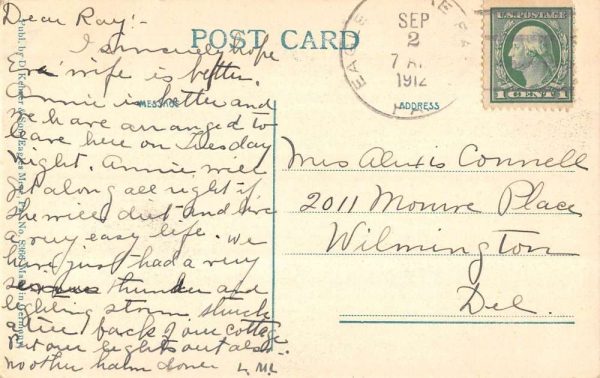 Dear Ray:-
I sincerely hope
wife is better.
Annie is better and
we have arranged to
leave here on Tuesday
night. Annie will
get along all right if
she will diet and live
a very easy life. We
have just had a very
thunder and
lightning storm. Struck
a tree back of our cottage
Put our lights out also.
no other harm done
POST CARD
MESSAGE
ADDRESS
SEP
2
7
1912
PA
U.S. POSTAGE
1 CENT 1
Mrs Alexis Connell
2011 Monroe Place
Wilmington
Del.
Publ. by D Kelmer & Son, Eagles Mere, Pa. No.